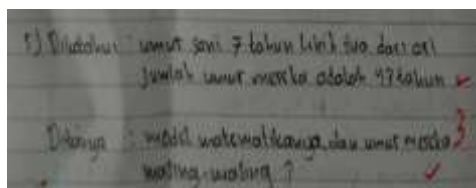 5.) Diketahui : umur sani 7 tahun lebih tua dari ari
jumlah umur mereka adalah 43 tahun
Ditanya : model matematikanya dan umur mereka
masing-masing ?